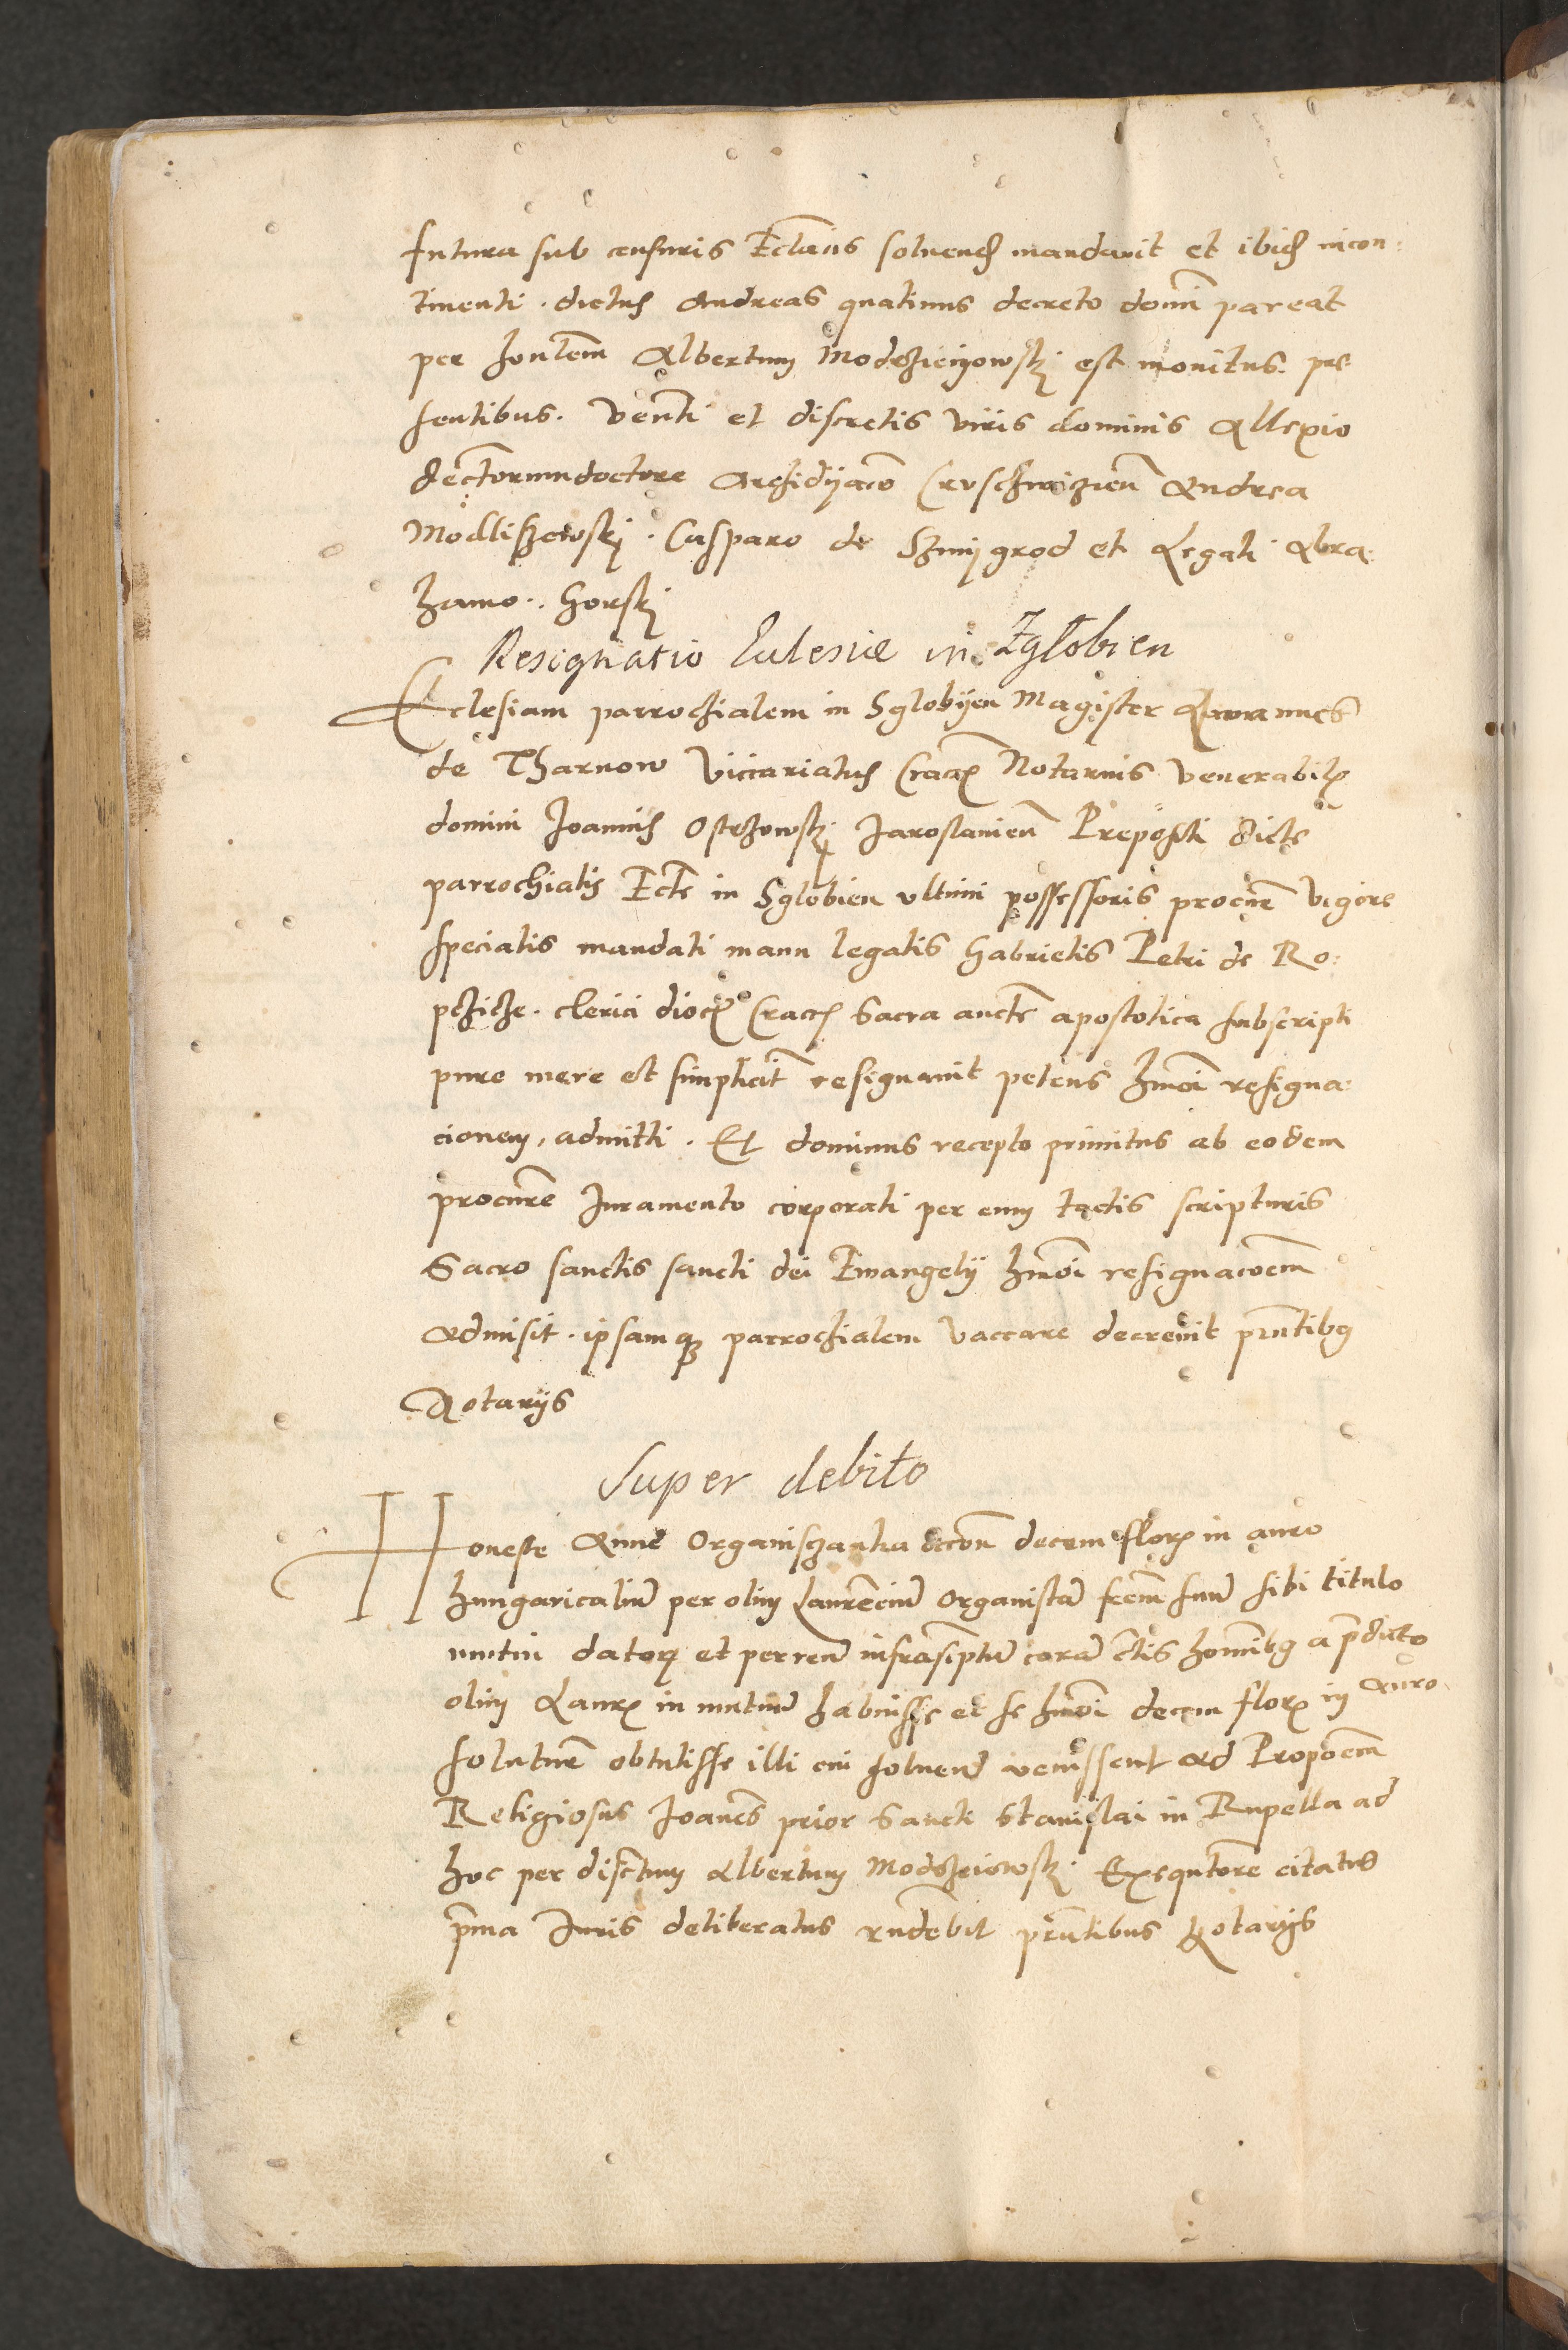 futura sub censuris Ecclīcis soluend mandauit et ibid incon:
tinenti . dictus Andreas quatinus decreto domī pareat
per honlem Albertum Modrzieijowskj est monitus . pre
sentibus . Venlī et discretis viris dominis Allexio
decretorum doctore Archidijacō Crvschwiczien Andrea
Modlischewskj . Casparo de Szmijgrod et Legali Abra:
hamo .. Gorskj
Resignatio Eclesiæ in Zglobien
Eclesiam parrochialem in Sglobijen Magister Ioannes
de Tharnow Viccariatus Cracoꝝ Notarius venerabilꝭ
domini Joannis Ostrzowskj Jaroslauien Prepositi dicte
parrochialis Eccle in Sglobien vltimi possessoris procur̄ vigore
specialis mandati manu legalis Gabrielis Petri de Ro:
pchicze . clerici dioc Cracoꝝ Sacra aucte apostolica subscripti
pure mere et simplicit̄ resignauit petens hmōi resigna:
cionem, admitti . Et dominus recepto primitus ab eodem
procur̄e Juramento corporali per eum tactis scripturis
Sacro sanctis sancti dei Ewangelij hmōi resignacōem
admisit . ipsamqꝫ parrochialem vaccare decreuit prn̄tibꝫ
Notarijs
Super debito
Honeste Anne Organisczanka decem floꝝ in auro
hungaricaliū per olim Laurēciū Organistā frēm suū sibi titulo
mutui datoꝝ et per renū infrascriptū corā ctis homībꝫ a pdicto
olim Laurꝭ in mutuū habuisse et se hmōi decem floꝝ in auro
soluturē obtulisse illi cui soluend venissent ad Propōem
Religiosus Joanes prior Sancti Stanislai in Rupella ad
hoc per discretum Albertum Modrzeiowskj . Exequtore citatus
pma Juris deliberatus rndebit prn̄tibus Notarijs